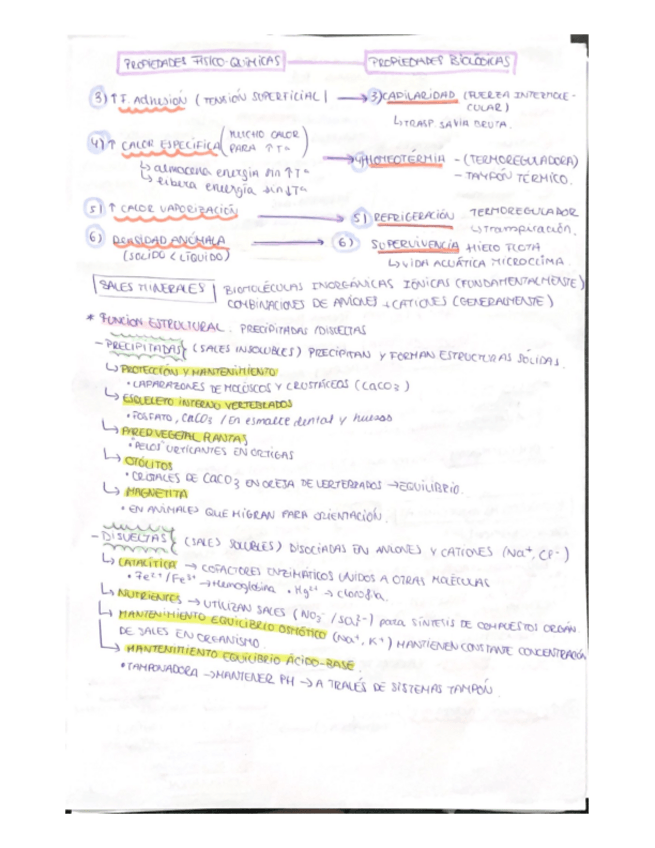 PROPIEDADES FÍSICO-QUÍMICAS PROPIEDADES BIOLÓGICAS
3) ↑ F. Adhesión (TENSIÓN SUPERFICIAL) → 3) CAPILARIDAD (FUERZA INTERMOLE-
CULAR)
↳ TRASP. SAVIA BRUTA.
4) ↑ CALOR ESPECÍFICA (MUCHO CALOR
PARA ↑Tª)
→ 4) HOMEOTÉRMIA - (TERMOREGULADORA)
↳ almacena energía sin ↑Tª
- TAMPÓN TÉRMICO.
↳ libera energía sin ↓Tª
5) ↑ CALOR VAPORIZACIÓN → 5) REFRIGERACIÓN. TERMOREGULADOR
↳ Transpiración.
6) DENSIDAD ANÓMALA → 6) SUPERVIVENCIA HIELO FLOTA
(SOLIDO < LÍQUIDO)
↳ VIDA ACUÁTICA MICROCLIMA.
SALES MINERALES BIOMOLÉCULAS INORGÁNICAS IÓNICAS (FUNDAMENTALMENTE)
COMBINACIONES DE ANIONES + CATIONES (GENERALMENTE)
* FUNCIÓN ESTRUCTURAL. PRECIPITADAS / DISUELTAS
- PRECIPITADAS (SALES INSOLUBLES) PRECIPITAN Y FORMAN ESTRUCTURAS SÓLIDAS.
↳ PROTECCIÓN Y MANTENIMIENTO
• CAPARAZONES DE MOLUSCOS Y CRUSTÁCEOS (CaCO3)
↳ ESQUELETO INTERNO VERTEBRADOS
• FOSFATO, CaCO3 / En esmalte dental y huesos
↳ PARED VEGETAL PLANTAS
• "PELOS" URTICANTES EN ORTIGAS
↳ OTOLITOS
• CRISTALES DE CaCO3 EN OREJA DE VERTEBRADOS → EQUILIBRIO.
↳ MAGNETITA
• EN ANIMALES QUE MIGRAN PARA ORIENTACIÓN.
- DISUELTAS (SALES SOLUBLES) DISOCIADAS EN ANIONES Y CATIONES (Na+, Cl-)
↳ CATALÍTICA → COFACTORES ENZIMÁTICOS UNIDOS A OTRAS MOLÉCULAS
• Fe2+/Fe3+ → Hemoglobina • Mg2+ → clorofila.
↳ NUTRIENTES → UTILIZAN SALES (NO3- / SO42-) para SÍNTESIS DE COMPUESTOS ORGÁN.
↳ MANTENIMIENTO EQUILIBRIO OSMÓTICO (Na+, K+) MANTIENEN CONSTANTE CONCENTRACIÓN
DE SALES EN ORGANISMO.
↳ MANTENIMIENTO EQUILIBRIO ÁCIDO-BASE.
• TAMPONADORA → MANTENER PH → A TRAVÉS DE SISTEMAS TAMPÓN.